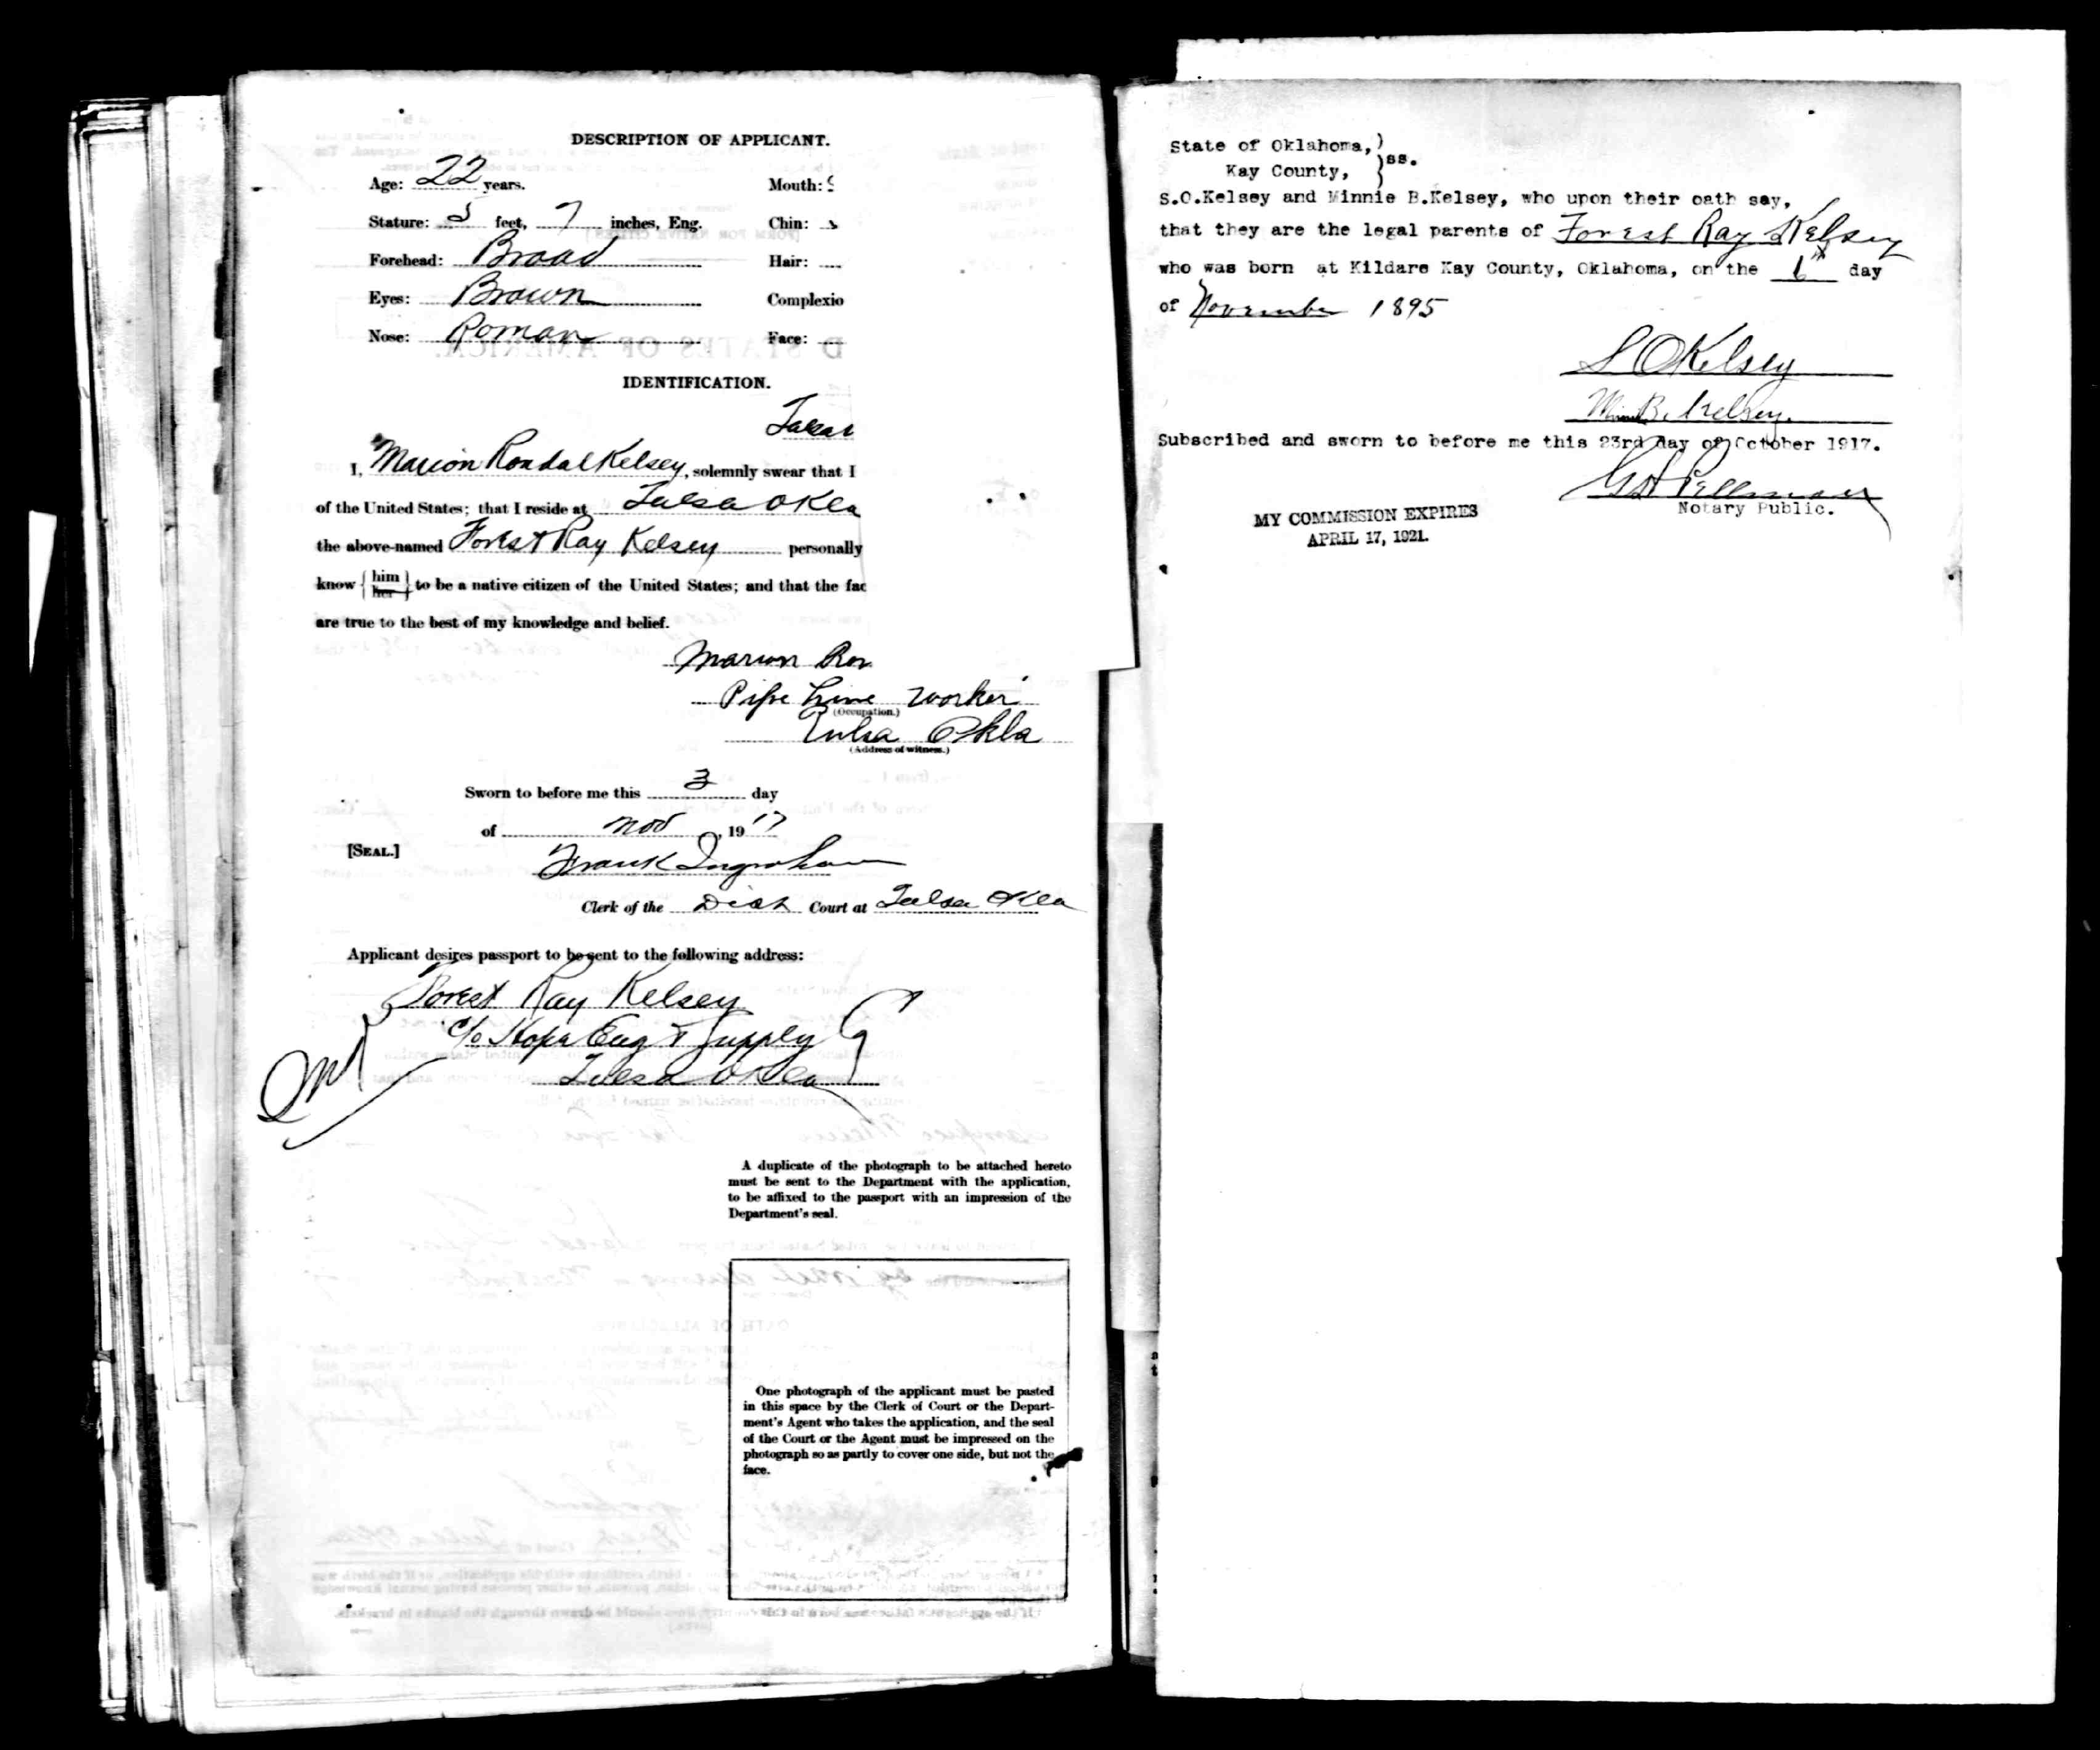 DESCRIPTION OF APPLICANT.
Age: 22 years.
Mouth:
Stature: 5 feet, 7 inches, Eng.
Chin:
Forehead: Broad
Hair:
Eyes: Brown
Complexio
Nose: Roman
Face:
IDENTIFICATION.
I, Marion Randal Kelsey, solemnly swear that I
of the United States; that I reside at Tulsa Okla
the above-named Forest Ray Kelsey personally
know {him her} to be a native citizen of the United States; and that the fac
are true to the best of my knowledge and belief.
Marion Ran
Pipe Line Worker
(Occupation.)
Tulsa Okla
(Address of witness.)
Sworn to before me this 3 day
of Nov, 1917
[SEAL.]
Frank Ingraham
Clerk of the Dist Court at Tulsa Okla
Applicant desires passport to be sent to the following address:
Forest Ray Kelsey
c/o Hope Eng & Supply Co
Tulsa Okla
A duplicate of the photograph to be attached hereto
must be sent to the Department with the application,
to be affixed to the passport with an impression of the
Department's seal.
One photograph of the applicant must be pasted
in this space by the Clerk of Court or the Depart-
ment's Agent who takes the application, and the seal
of the Court or the Agent must be impressed on the
photograph so as partly to cover one side, but not the
face.
State of Oklahoma,)
Kay County, }ss.
S.O.Kelsey and Minnie B.Kelsey, who upon their oath say,
that they are the legal parents of Forest Ray Kelsey
who was born at Kildare Kay County, Oklahoma, on the day
of November 1895
S O Kelsey
Minnie B. Kelsey.
Subscribed and sworn to before me this 23rd day of October 1917.
Notary Public.
MY COMMISSION EXPIRES
APRIL 17, 1921.